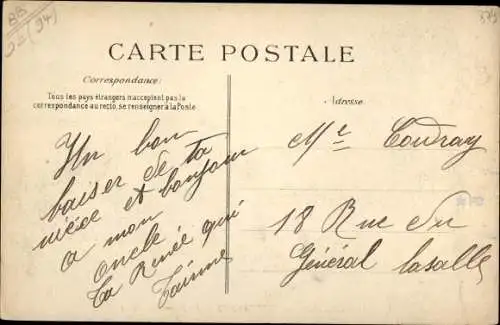 CARTE POSTALE
Correspondance:
Tous les pays étrangers n'acceptent pas la
correspondance au recto, se renseigner à la Poste
Adresse
Un bon
baiser de ta
nièce et bonjour
a mon
oncle
ta Renée qui
t'aime
Me
18 Rue du
Général Lasalle